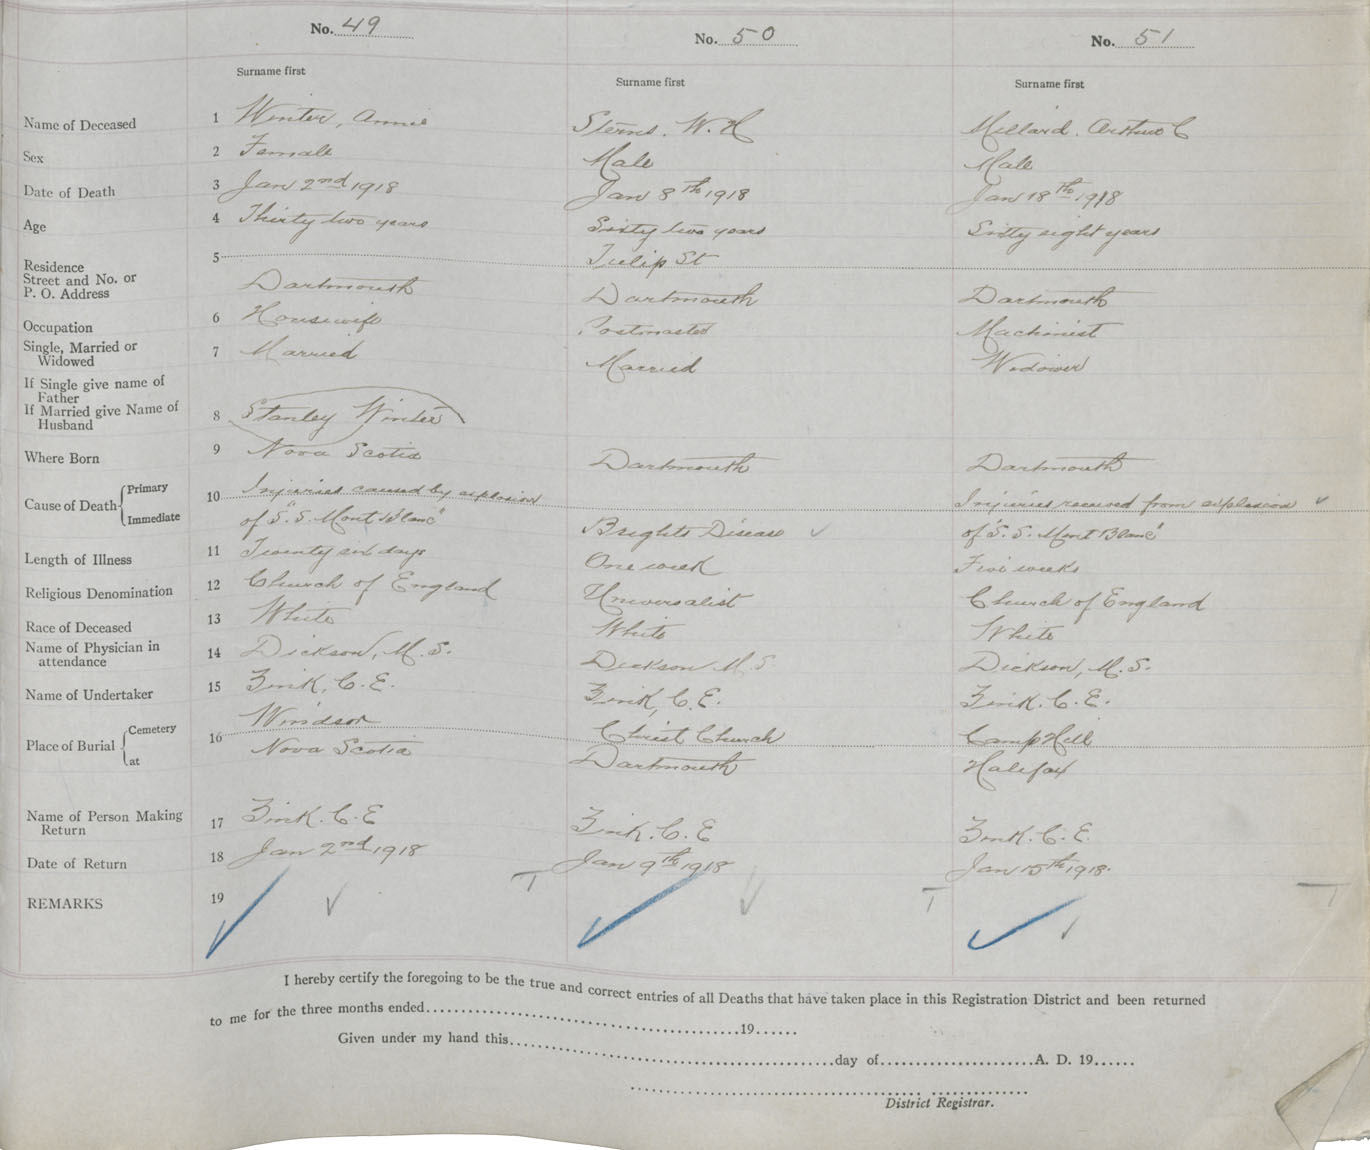 No. 49 No. 50 No. 51
Surname first Surname first Surname first
Name of Deceased 1 Winter, Annie Sterns. W. H Millard. Arthur C
Sex 2 Female Male Male
Date of Death 3 Jan 2nd 1918 Jan 8th 1918 Jan 18th 1918
Age 4 Thirty two years Sixty two years Sixty eight years
Residence 5 Tulip St
Street and No. or
P. O. Address Dartmouth Dartmouth Dartmouth
Occupation 6 Housewife Postmaster Machinist
Single, Married or
Widowed 7 Married Married Widower
If Single give name of
Father
If Married give Name of
Husband 8 Stanley Winter
Where Born 9 Nova Scotia Dartmouth Dartmouth
Cause of Death Primary 10 Injuries caused by explosion Injuries received from explosion
Immediate of "S.S. Mont Blanc" Brights Disease of "S.S. Mont Blanc"
Length of Illness 11 Twenty six days One week Five weeks
Religious Denomination 12 Church of England Universalist Church of England
Race of Deceased 13 White White White
Name of Physician in
attendance 14 Dickson, M. S. Dickson M. S Dickson, M. S.
Name of Undertaker 15 Zink, C. E. Zink, C. E. Zink. C. E.
Place of Burial Cemetery 16 Windsor Christ Church Camp Hill
at Nova Scotia Dartmouth Halifax
Name of Person Making
Return 17 Zink. C. E Zink. C. E Zink. C. E.
Date of Return 18 Jan 2nd 1918 Jan 9th 1918 Jan 15th 1918.
REMARKS 19
I hereby certify the foregoing to be the true and correct entries of all Deaths that have taken place in this Registration District and been returned
to me for the three months ended 19
Given under my hand this day of A. D. 19
District Registrar.